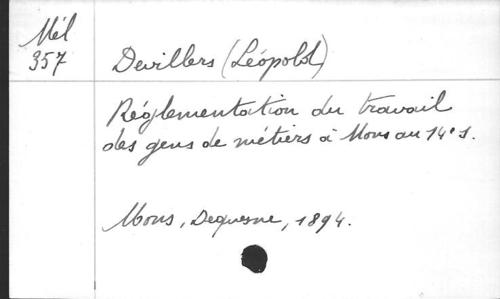 Mél
357
Devillers (Léopold)
Réglementation du travail
des gens de métiers à Mons au 14e s.
Mons, Dequesne, 1894.